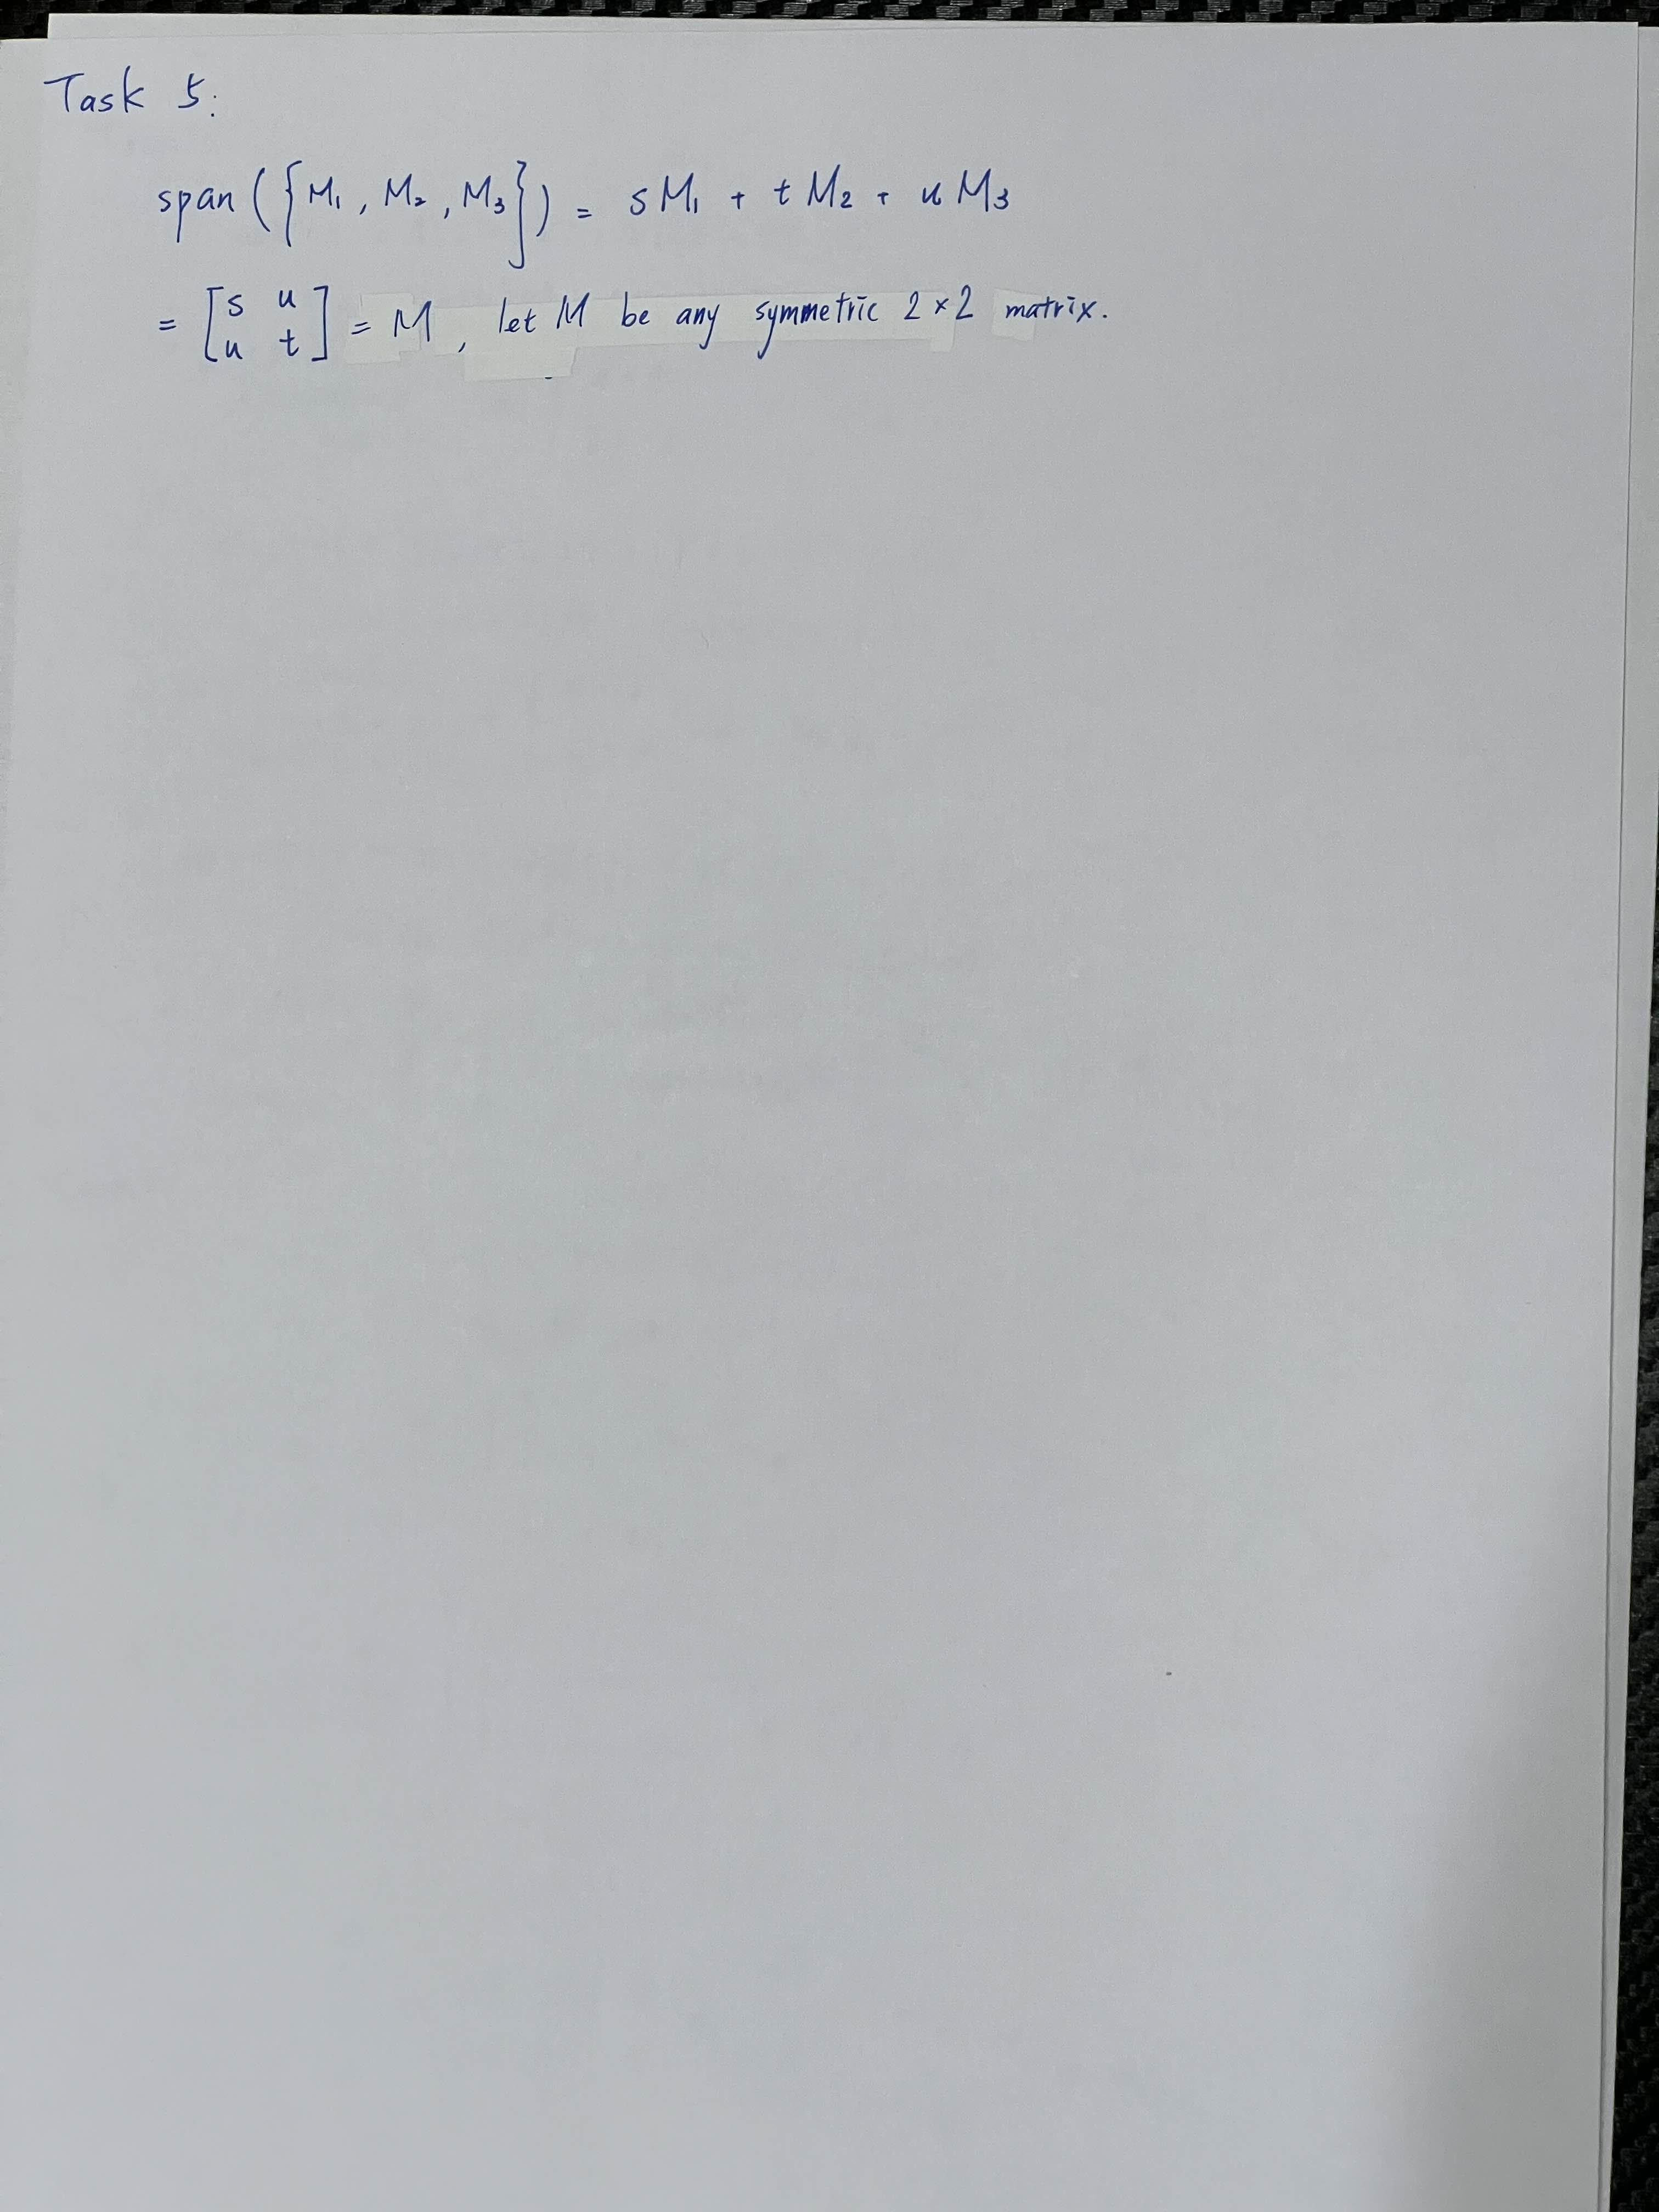 Task 5:
span ({M₁, M₂, M₃}) = sM₁ + tM₂ + uM₃
= [s u
u t] = M, let M be any symmetric 2×2 matrix.